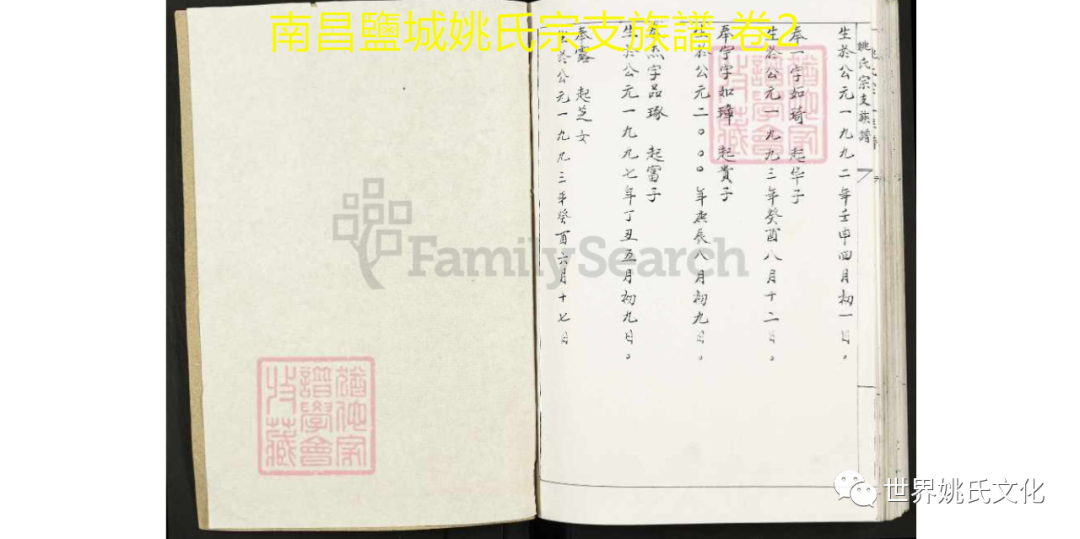 南昌鹽城姚氏宗支族譜 卷2
姚氏宗支族譜
生於公元一九九二年壬申四月初一日。
奉一字如琦 起华子
生於公元一九九三年癸酉八月十二日。
奉宇字如璋 起貴子
生於公元二〇〇〇年庚辰八月初九日。
杰字品琢 起富子
生於公元一九九七年丁丑五月初九日。
奉露 起芝女
生於公元一九九三年癸酉六月十七日
FamilySearch
猶他家
譜學會
收藏
猶他家
譜學會
收藏
世界姚氏文化